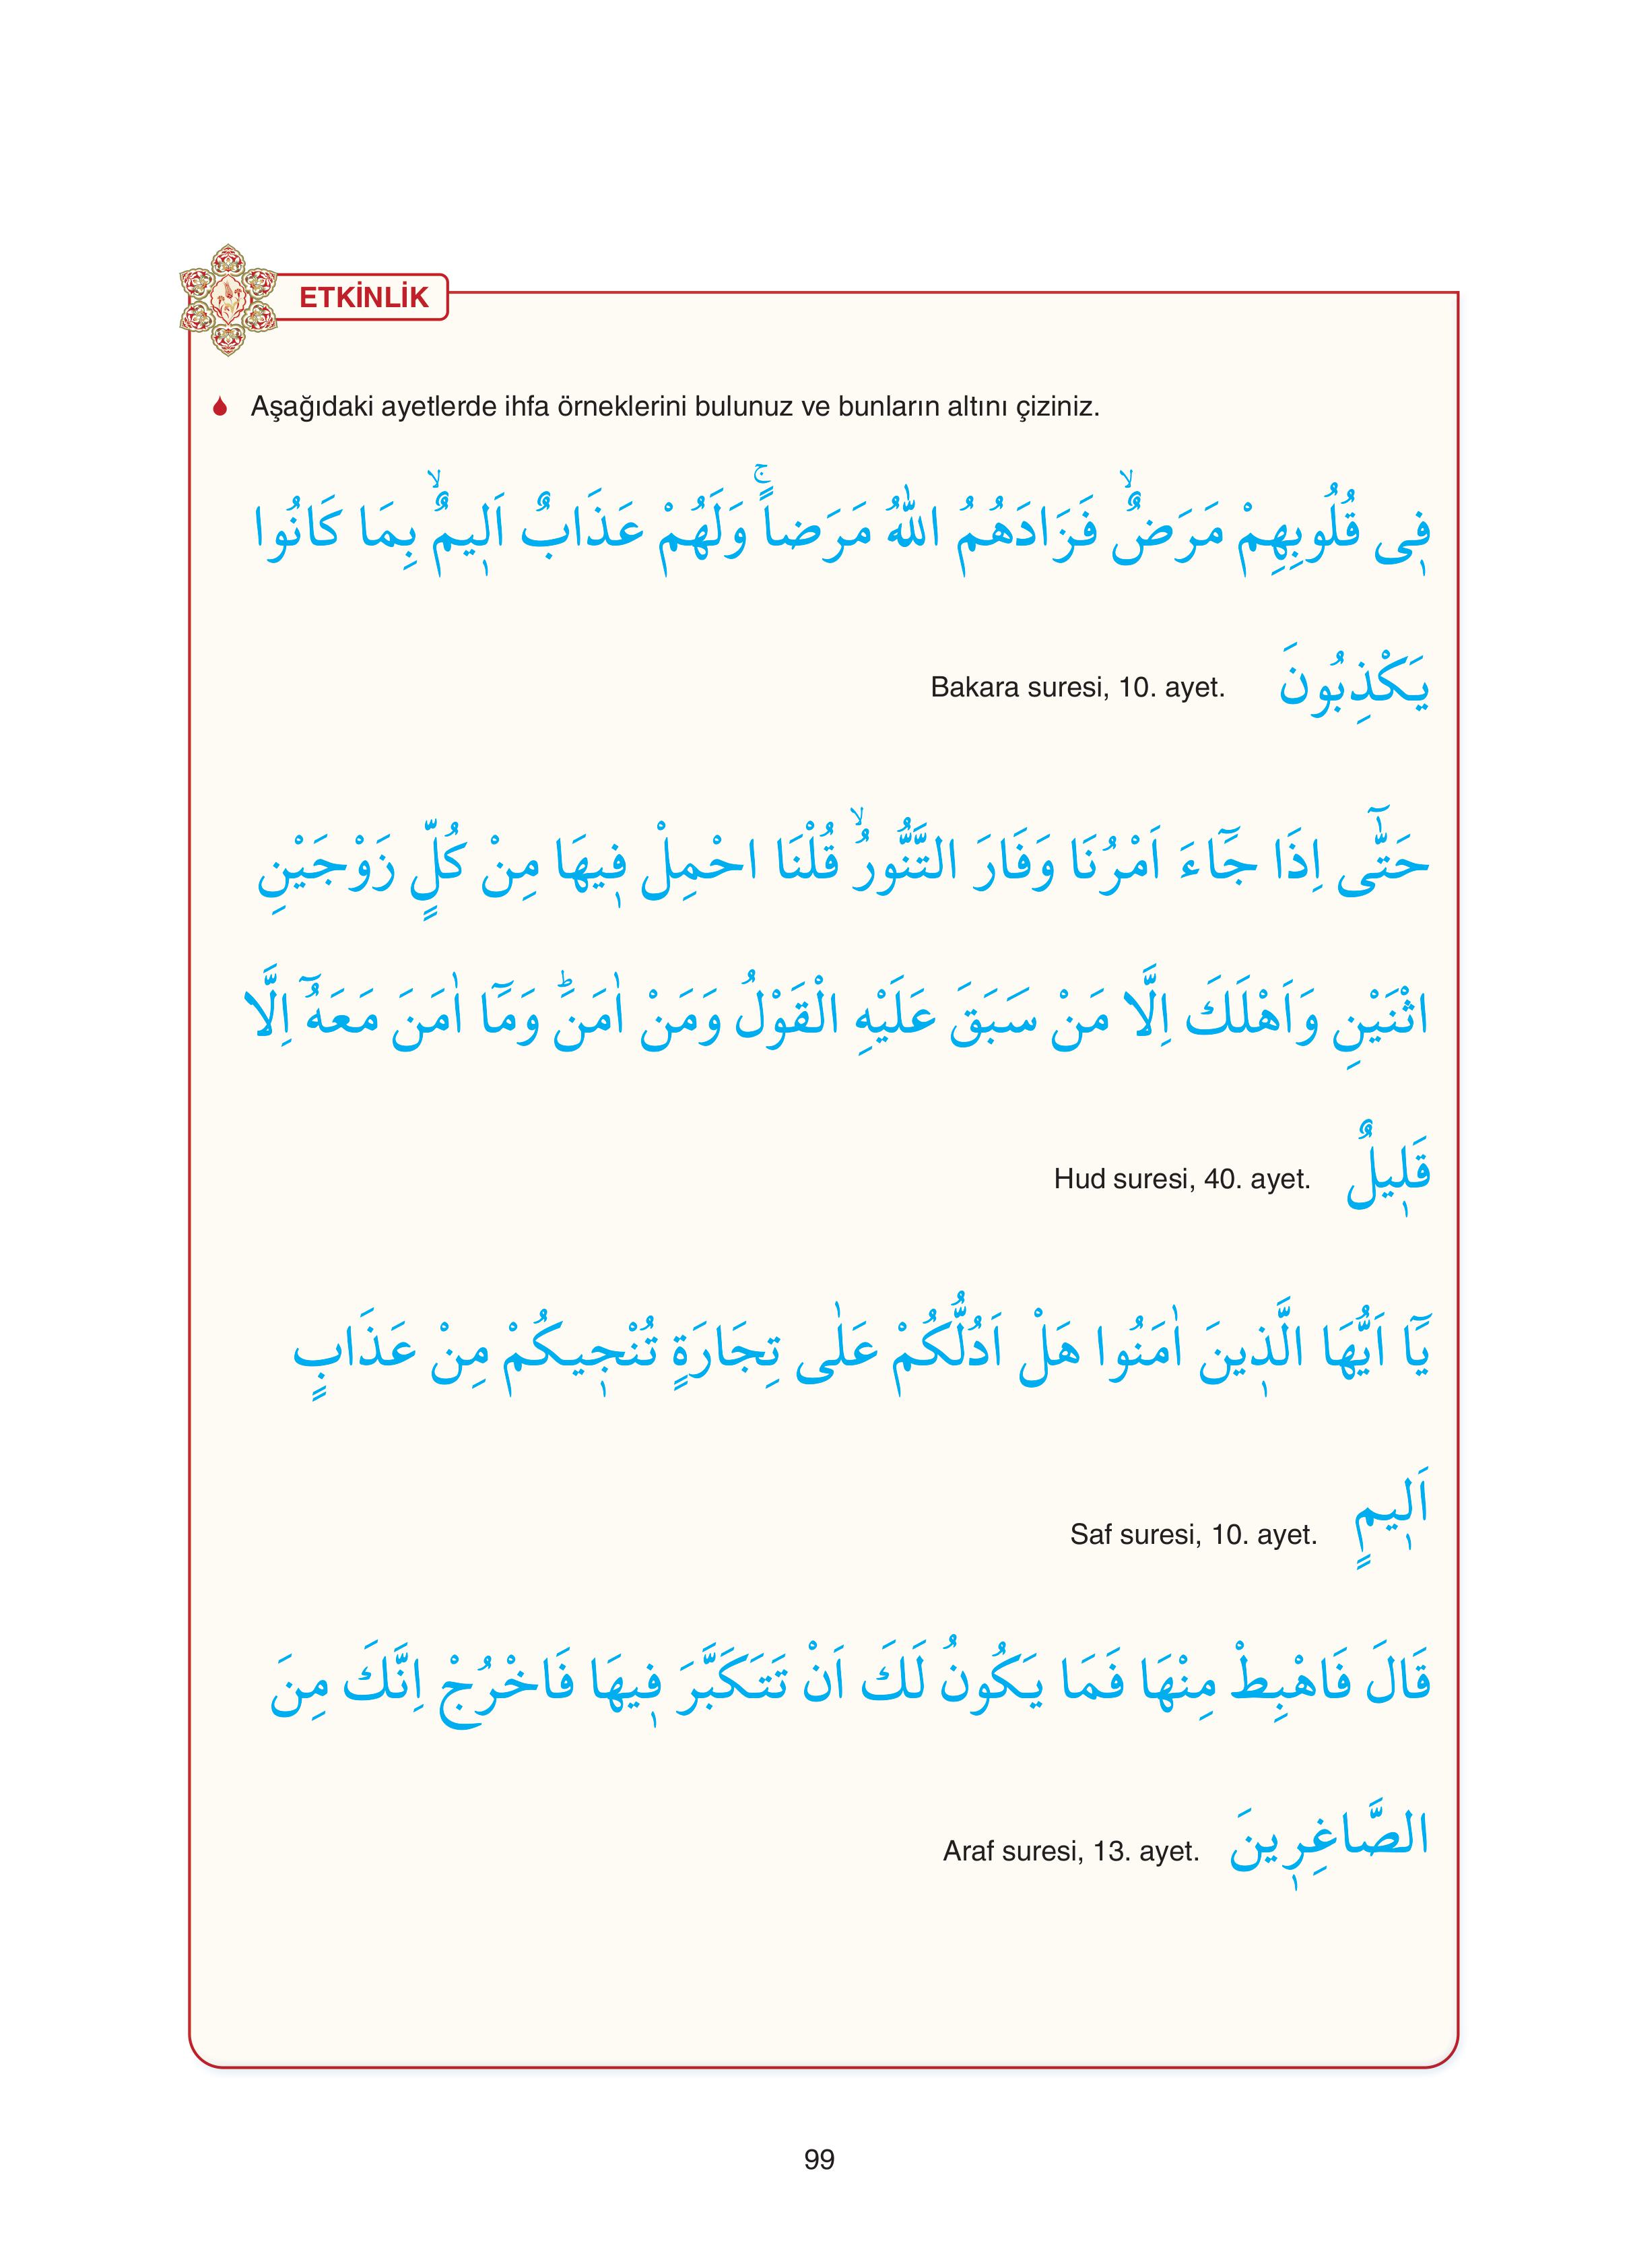 ETKİNLİK
Aşağıdaki ayetlerde ihfa örneklerini bulunuz ve bunların altını çiziniz.
فٖى قُلُوبِهِمْ مَرَضٌۙ فَزَادَهُمُ اللّٰهُ مَرَضاًۚ وَلَهُمْ عَذَابٌ اَلٖيمٌۙ بِمَا كَانُوا
يَكْذِبُونَ Bakara suresi, 10. ayet.
حَتّٰٓى اِذَا جَٓاءَ اَمْرُنَا وَفَارَ التَّنُّورُۙ قُلْنَا احْمِلْ فٖيهَا مِنْ كُلٍّ زَوْجَيْنِ
اثْنَيْنِ وَاَهْلَكَ اِلَّا مَنْ سَبَقَ عَلَيْهِ الْقَوْلُ وَمَنْ اٰمَنَؕ وَمَٓا اٰمَنَ مَعَهُٓ اِلَّا
قَلٖيلٌ Hud suresi, 40. ayet.
يَٓا اَيُّهَا الَّذٖينَ اٰمَنُوا هَلْ اَدُلُّكُمْ عَلٰى تِجَارَةٍ تُنْجٖيكُمْ مِنْ عَذَابٍ
اَلٖيمٍ Saf suresi, 10. ayet.
قَالَ فَاهْبِطْ مِنْهَا فَمَا يَكُونُ لَكَ اَنْ تَتَكَبَّرَ فٖيهَا فَاخْرُجْ اِنَّكَ مِنَ
الصَّاغِرٖينَ Araf suresi, 13. ayet.
99